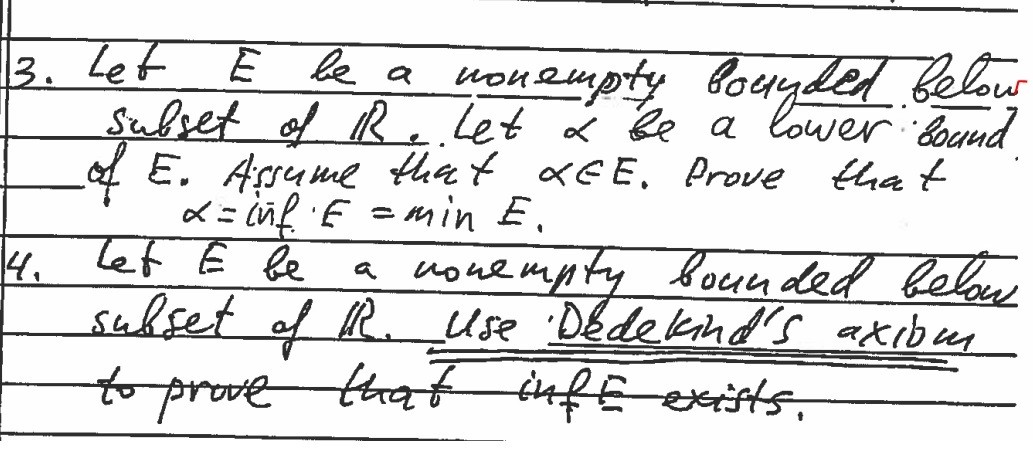 3. Let E be a nonempty bounded below
subset of ℝ. Let α be a lower bound
of E. Assume that α∈E. Prove that
α = inf E = min E.
4. Let E be a nonempty bounded below
subset of ℝ. Use Dedekind's axiom
to prove that inf E exists.